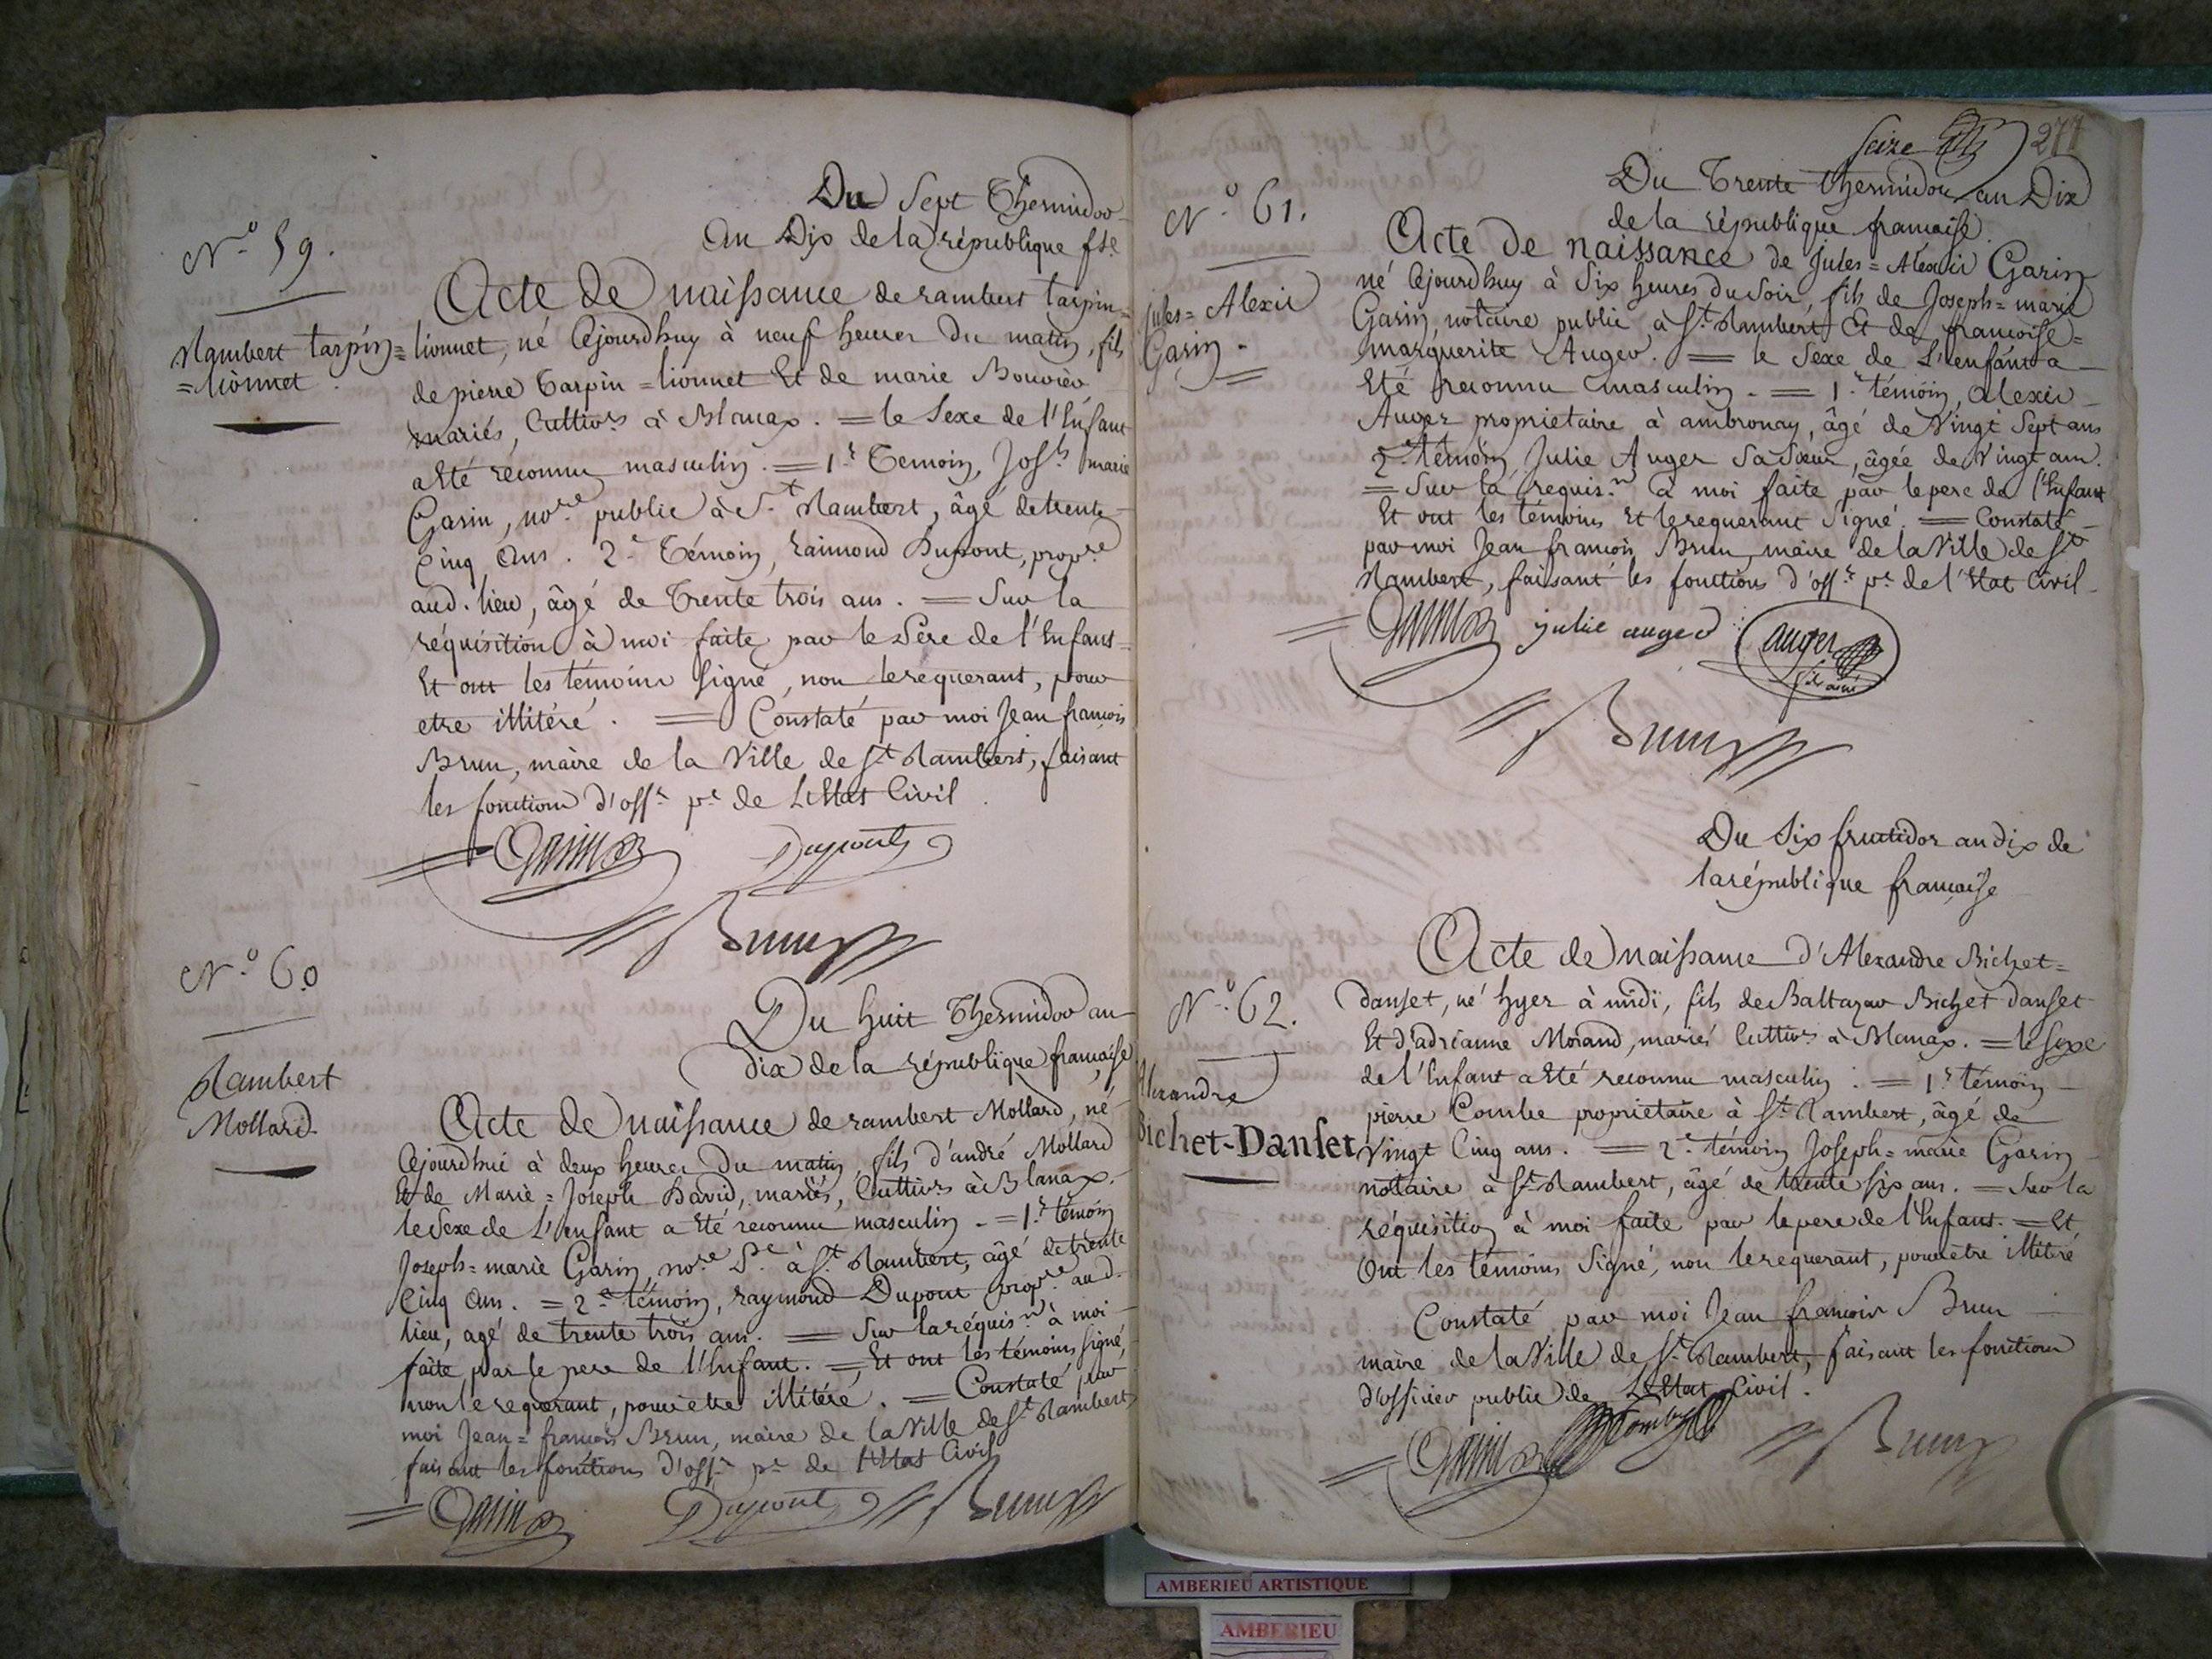 Du Sept Thermidor
An Dix de la république fse
N.o 59.
Rambert tarpin=
=lionnet.
Acte de naissance de rambert tarpin=
lionnet, né Cejourdhuy à neuf heures du matin, fils
de pierre Tarpin=lionnet Et de marie Bouvier
mariés, Cultivrs à Blanax. = le Sexe de l'Enfant
a Eté reconnu masculin. = 1.r Temoin, Josh marie
Garin, nore public à St Rambert, âgé de trente
Cinq Ans. 2.e Témoin, raimond Dupont, propre
aud. lieu, âgé de Trente trois ans. = Sur la
réquisition à moi faite par le Père de l'Enfant=
Et ont les témoins signé, non le requerant, pour
etre illitéré. = Constaté par moi Jean françois
Brun, maire de la Ville de St Rambert, faisant
les fonctions d'offr pc de L'Etat Civil.
Garin Dupont
Brun
N.o 60
Rambert
Mollard.
Du huit Thermidor an
dix de la république française
Acte de naissance de rambert Mollard, né
Cejourdhui à deux heures Du matin, fils d'andré Mollard
Et de Marie=Joseph David, mariés, Cultivrs à Blanax.
le Sexe de L'enfant a Eté reconnu masculin. = 1.r témoin
Joseph=marie Garin nore Pc à St Rambert, âgé de trente
Cinq Ans. = 2.e témoin, raymond Dupont propre aud.
lieu, agé de trente trois ans. = Sur la réquis.n à moi
faite par le pere de l'Enfant. = Et ont les témoins signé,
non le requerant, pour etre illitéré. = Constaté par
moi Jean=françois Brun, maire de la Ville de St Rambert
faisant les fonctions d'offr pc de l'Etat Civil
Garin Dupont Brun
Seize 277
Du Trente thermidor an Dix
de la république française.
N.o 61.
Jules=Alexis
Garin.
Acte de naissance de Jules=Alexis Garin
né Cejourdhuy à Six heures du Soir, fils de Joseph=marie
Garin, notaire public à St Rambert Et de françoise=
marguerite Auger. = le Sexe de L'enfant a
Eté reconnu masculin. = 1.r témoin, alexis
Auger propriétaire à ambronay, âgé de Vingt Sept ans
2.e témoin Julie Auger Sa Sœur, âgée de Vingt ans.
= Sur la requis.n à moi faite par le pere de l'Enfant
Et ont les témoins Et le requerant Signé. = Constaté
par moi Jean françois Brun, maire de la Ville de St
Rambert, faisant les fonctions d'offr pc de l'Etat Civil
Garin julie auger auger
fils ainé
Brun
Du Six fructidor an dix de
la république française
N.o 62.
Alexandre
Bichet-Danset
Acte de naissance d'Alexandre Bichet=
danset, né hyer à midi, fils de Baltazar Bichet danset
Et d'adrianne Morand, mariés Cultivrs à Blanax. = le Sexe
de l'Enfant a Eté reconnu masculin. = 1.r témoin
pierre Combe propriétaire à St Rambert, âgé de
Vingt Cinq ans. = 2.e témoin Joseph=marie Garin
notaire à St Rambert, âgé de trente six ans. = Sur la
réquisition à moi faite par le pere de l'Enfant. = Et
Ont les témoins Signé, non le requerant, pour être illitéré
Constaté par moi Jean françois Brun
maire de la Ville de St Rambert, faisant les fonctions
d'officier public de L'Etat Civil.
Garin Combe Brun
AMBERIEU ARTISTIQUE
AMBERIEU